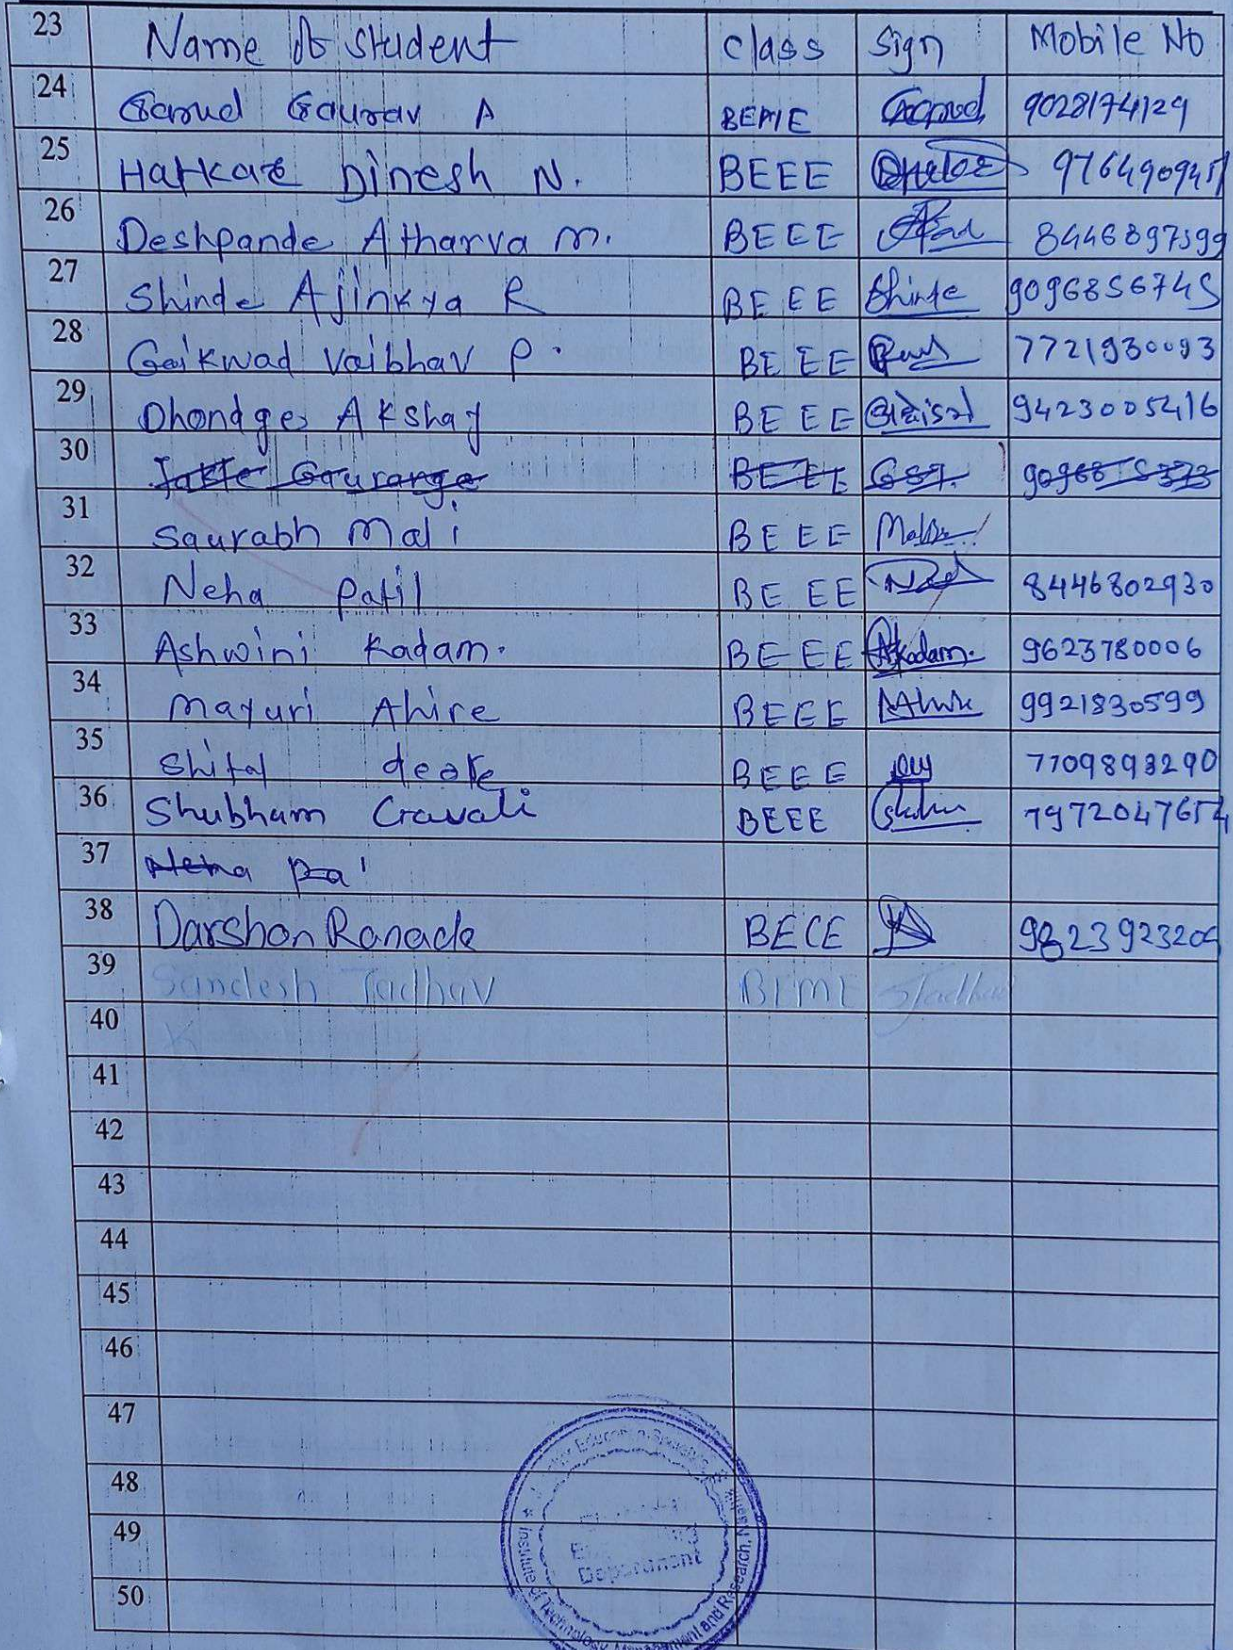 23 Name of student class Sign Mobile No
24 Garud Gaurav A BEME Garud 9028174129
25 Hatkar Dinesh N. BEEE 9764909451
26 Deshpande Atharva M. BEEE 8446897599
27 Shinde Ajinkya R BEEE Shinde 9096856745
28 Gaikwad Vaibhav P. BEEE 7721930093
29 Dhondge Akshay BEEE 9423005416
30 Jakte Gaurange BEEE
31 Saurabh Mali BEEE
32 Neha Patil BEEE 8446802930
33 Ashwini Kadam. BEEE AKadam. 9623780006
34 Mayuri Ahire BEEE 9921830599
35 Shital deore BEEE 7709893290
36 Shubham Gavali BEEE 7972047654
37 Neha Pa
38 Darshan Ranade BECE 9823923204
39 Sandesh Jadhav BEME SJadhav
40
41
42
43
44
45
46
47
48
49
50
Department
Institute of Technology, Management and Research, Nashik